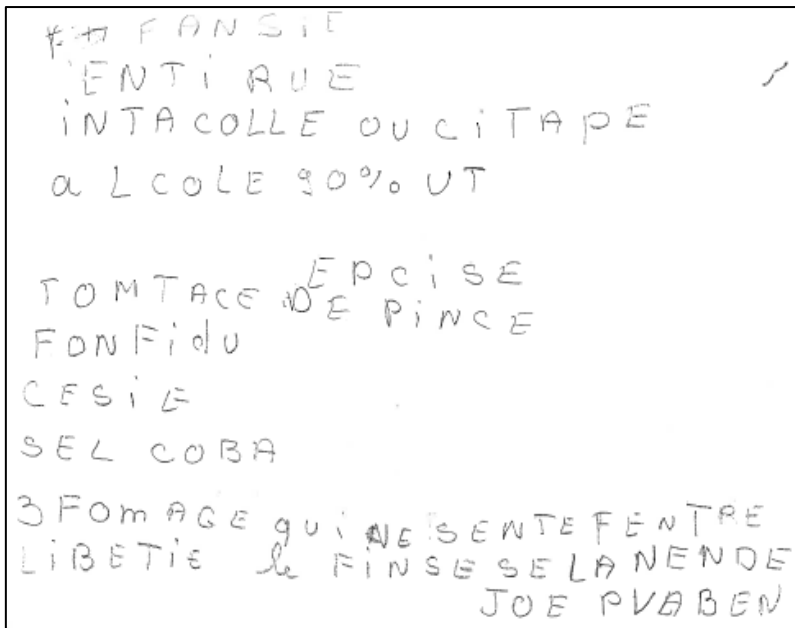 FANSiE
ENTi RUE
iNTACOLLE OU CiTAPE
aLCOLE 90% UT
EPCiSE
TOMTACE DE PiNCE
FONFidU
CESiE
SEL COBA
3 FOMAGE qui NE SENTE FENTRE
LiBETiE le FiNSE SE LA NENDE
JOE PUABEN